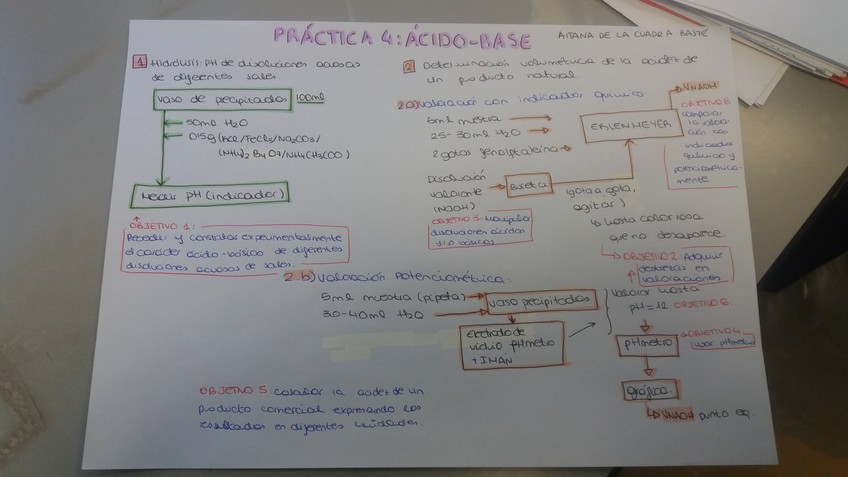 PRÁCTICA 4: ÁCIDO-BASE
AITANA DE LA CUADRA BASTÉ
1 Hidrólisis: pH de disoluciones acuosas
de diferentes sales
vaso de precipitados 100ml
50ml H2O
0'5g (KCl/FeCl3/Na2CO3/
(NH4)2 B4O7/NH4CH3COO)
Medir pH (indicador)
OBJETIVO 1:
Predecir y constatar experimentalmente
el carácter ácido-básico de diferentes
disoluciones acuosas de sales.
2 Determinación volumétrica de la acidez de
un producto natural
2.a) Valoración con indicador químico
5ml muestra
25-30ml H2O
2 gotas fenolftaleína
ERLENMEYER
VNaOH
OBJETIVO 6:
comparar
la valora-
ción con
indicador
químico y
potenciométrica-
mente
Disolución
valorante
(NaOH)
Bureta
(gota a gota,
agitar)
OBJETIVO 3: Manipular
disoluciones ácidas
y/o básicas
Hasta color rosa
que no desaparece
OBJETIVO 2: Adquirir
destrezas en
valoraciones
2.b) Valoración Potenciométrica
5ml muestra (pipeta)
30-40ml H2O
vaso precipitados
Electrodo de
vidrio pHmetro
+ IMÁN
Valorar hasta
pH=12 OBJETIVO 6
pHmetro
OBJETIVO 4:
(usar pHmetro)
gráfica
VNaOH punto eq
OBJETIVO 5: calcular la acidez de un
producto comercial expresando los
resultados en diferentes unidades.